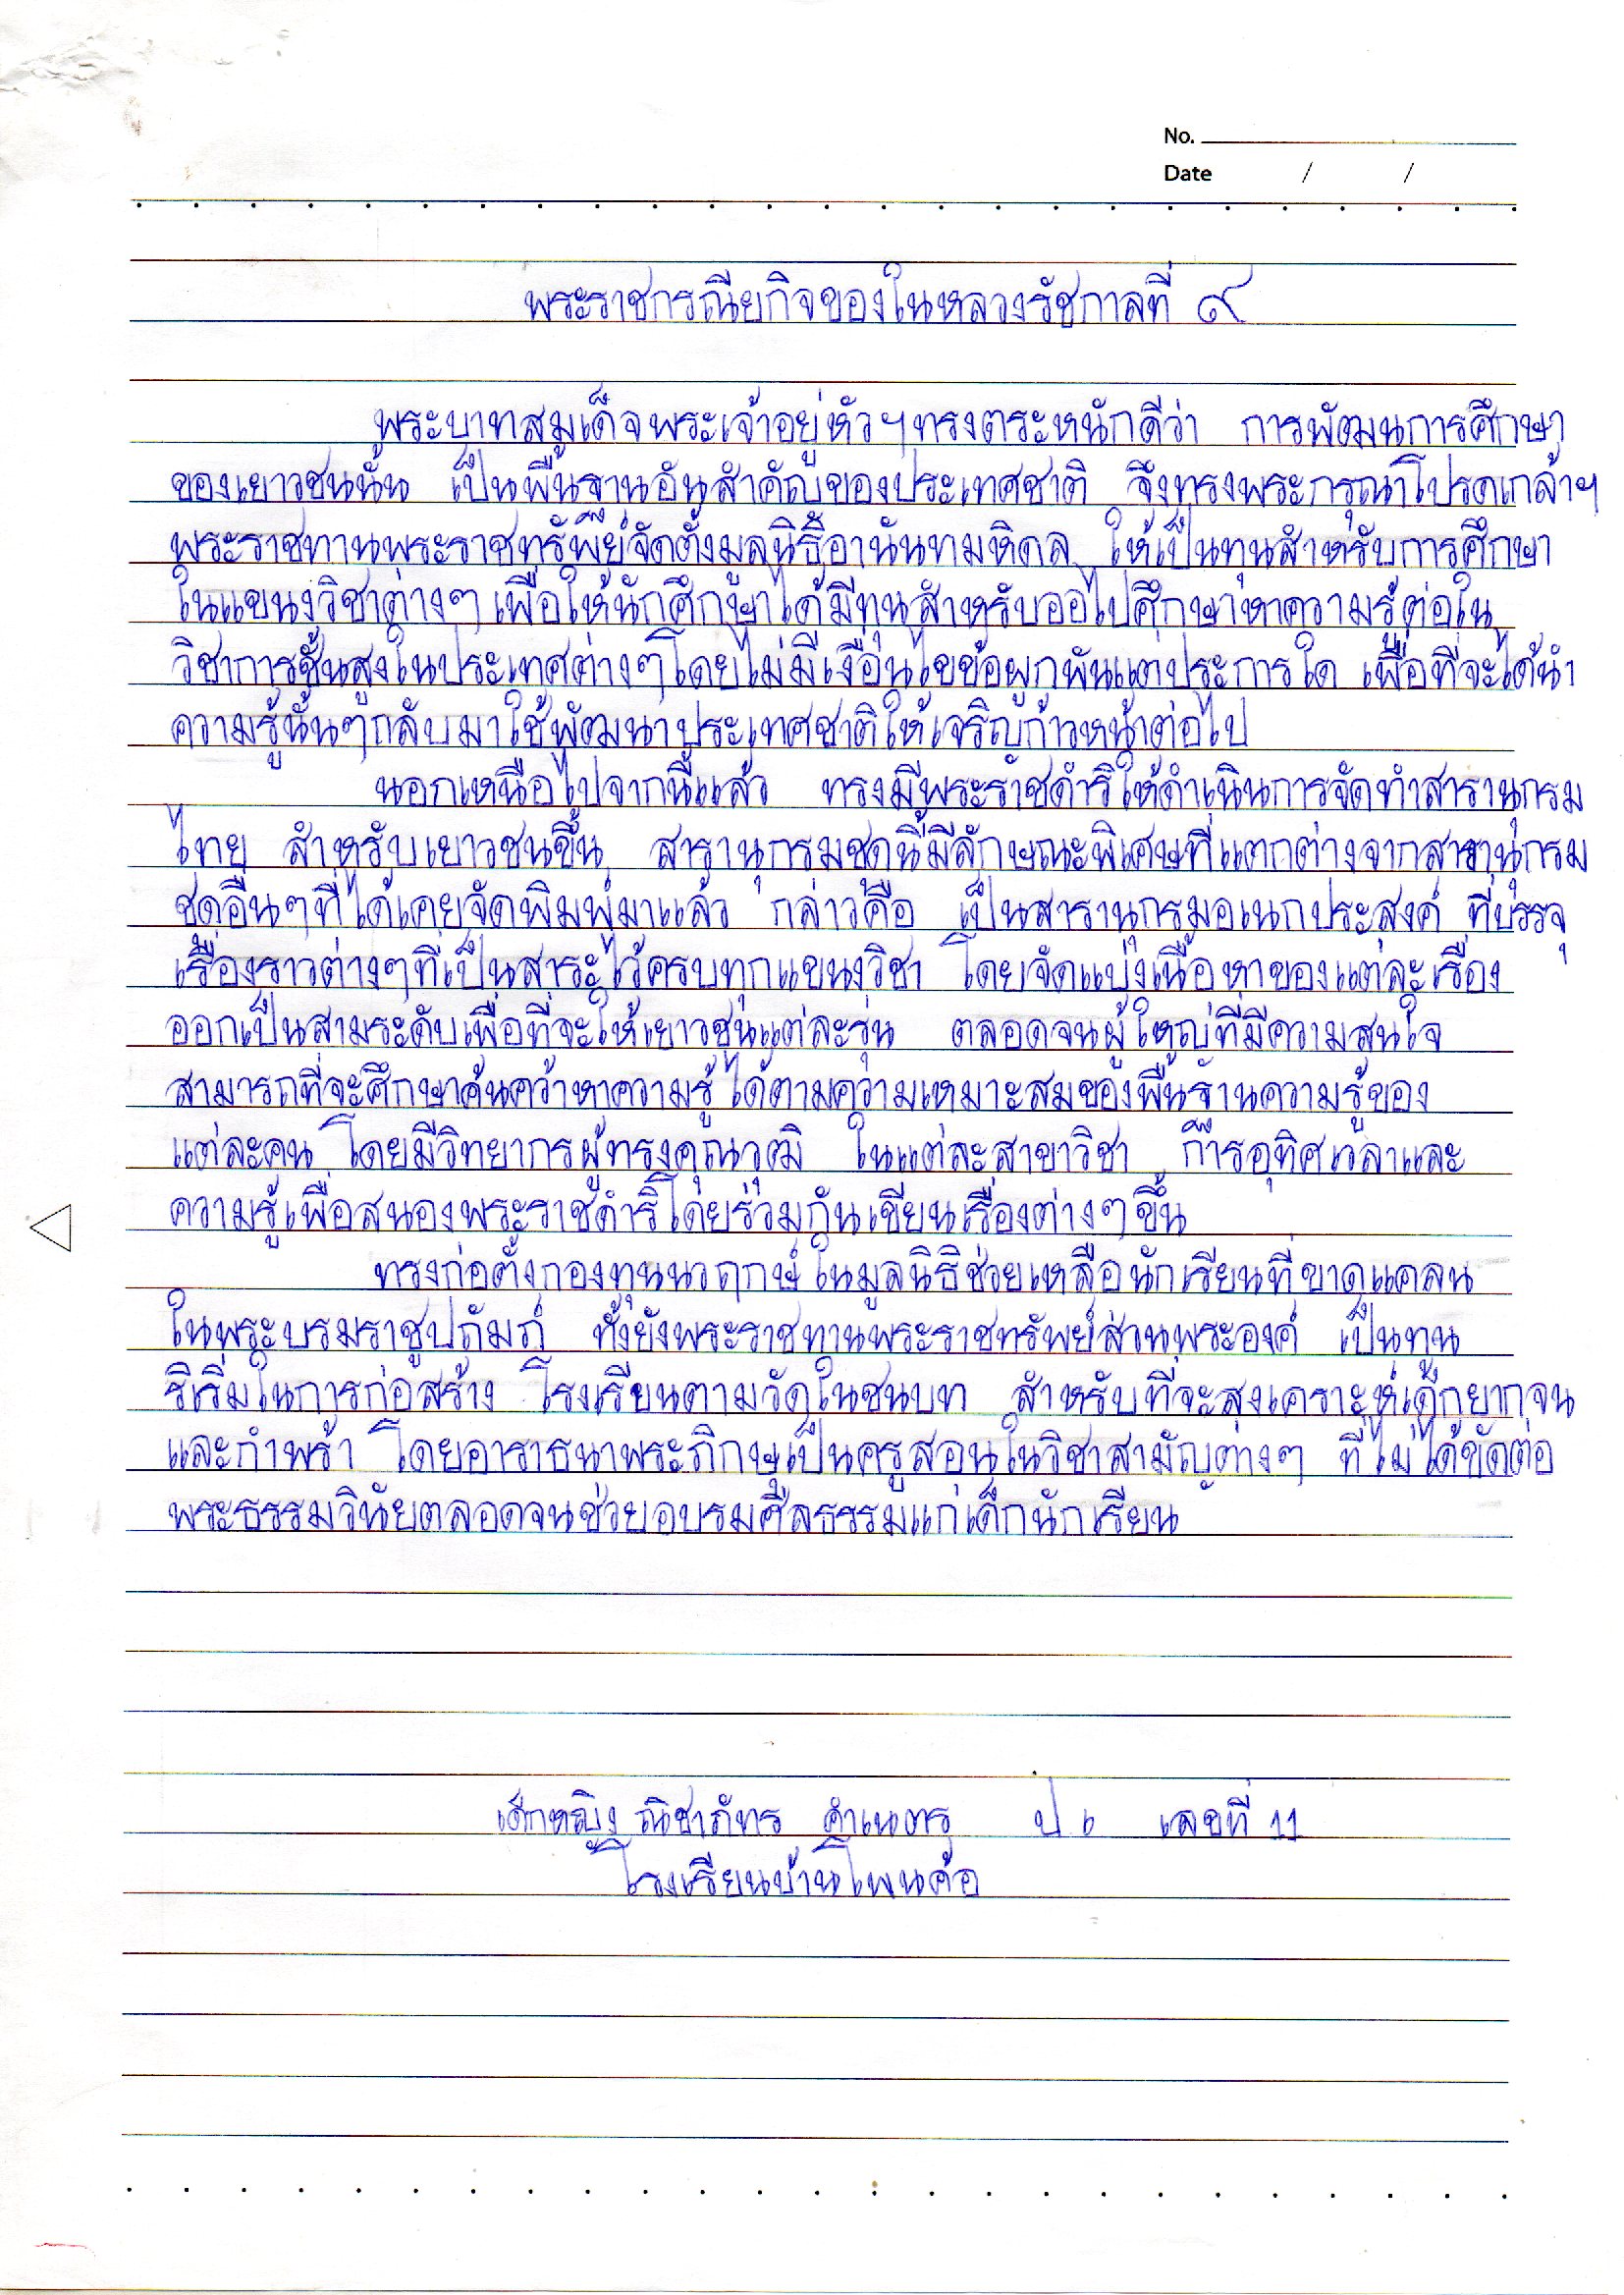 No.
Date / /
พระราชกรณียกิจของในหลวงรัชกาลที่ ๙
พระบาทสมเด็จพระเจ้าอยู่หัวฯทรงตระหนักดีว่า การพัฒนการศึกษา
ของเยาวชนนั้น เป็นพื้นฐานอันสำคัญของประเทศชาติ จึงทรงพระกรุณาโปรดเกล้าฯ
พระราชทานพระราชทรัพย์จัดตั้งมูลนิธิ้อานันทมหิดล ให้เป็นทุนสำหรับการศึกษา
ในแขนงวิชาต่างๆ เพื่อให้นักศึกษาได้มีทุนสำหรับออไปศึกษาหาความรู้ต่อใน
วิชาการชั้นสูงในประเทศต่างๆโดยไม่มีเงื่อนไขข้อผูกพันแต่ประการใด เพื่อที่จะได้นำ
ความรู้นั้นๆกลับมาใช้พัฒนาประเทศชาติให้เจริญก้าวหน้าต่อไป
นอกเหนือไปจากนี้แล้ว ทรงมีพระราชดำริให้ดำเนินการจัดทำสารานุกรม
ไทย สำหรับเยาวชนขึ้น สารานุกรมชุดนี้มีลักษณะพิเศษที่แตกต่างจากสารานุกรม
ชุดอื่นๆที่ได้เคยจัดพิมพ์มาแล้ว กล่าวคือ เป็นสารานุกรมอเนกประสงค์ ที่บรรจุ
เรื่องราวต่างๆที่เป็นสาระไว้ครบทุกแขนงวิชา โดยจัดแบ่งเนื้อหาของแต่ละเรื่อง
ออกเป็นสามระดับเพื่อที่จะให้เยาวชนแต่ละรุ่น ตลอดจนผู้ใหญ่ที่มีความสนใจ
สามารถที่จะศึกษาค้นคว้าหาความรู้ ได้ตามความเหมาะสมของพื้นฐานความรู้ของ
แต่ละคน โดยมีวิทยากรผู้ทรงคุณวุฒิ ในแต่ละสาขาวิชา การอุทิศเวลาและ
ความรู้เพื่อสนองพระราชดำริโดยร่วมกันเขียนเรื่องต่างๆขึ้น
ทรงก่อตั้งกองทุนนวฤกษ์ในมูลนิธิช่วยเหลือนักเรียนที่ขาดแคลน
ในพระบรมราชูปถัมภ์ ทั้งยังพระราชทานพระราชทรัพย์ส่วนพระองค์ เป็นทุน
ริเริ่มในการก่อสร้าง โรงเรียนตามวัดในชนบท สำหรับที่จะสงเคราะห์เด็กยากจน
และกำพร้า โดยอาราธนาพระภิกษุเป็นครูสอนในวิชาสามัญต่างๆ ที่ไม่ได้ขัดต่อ
พระธรรมวินัยตลอดจนช่วยอบรมศีลธรรมแก่เด็กนักเรียน
เด็กหญิง ณิชาภัทร คำเนตร ป เลขที่ 11
โรงเรียนบ้านโพนค้อ